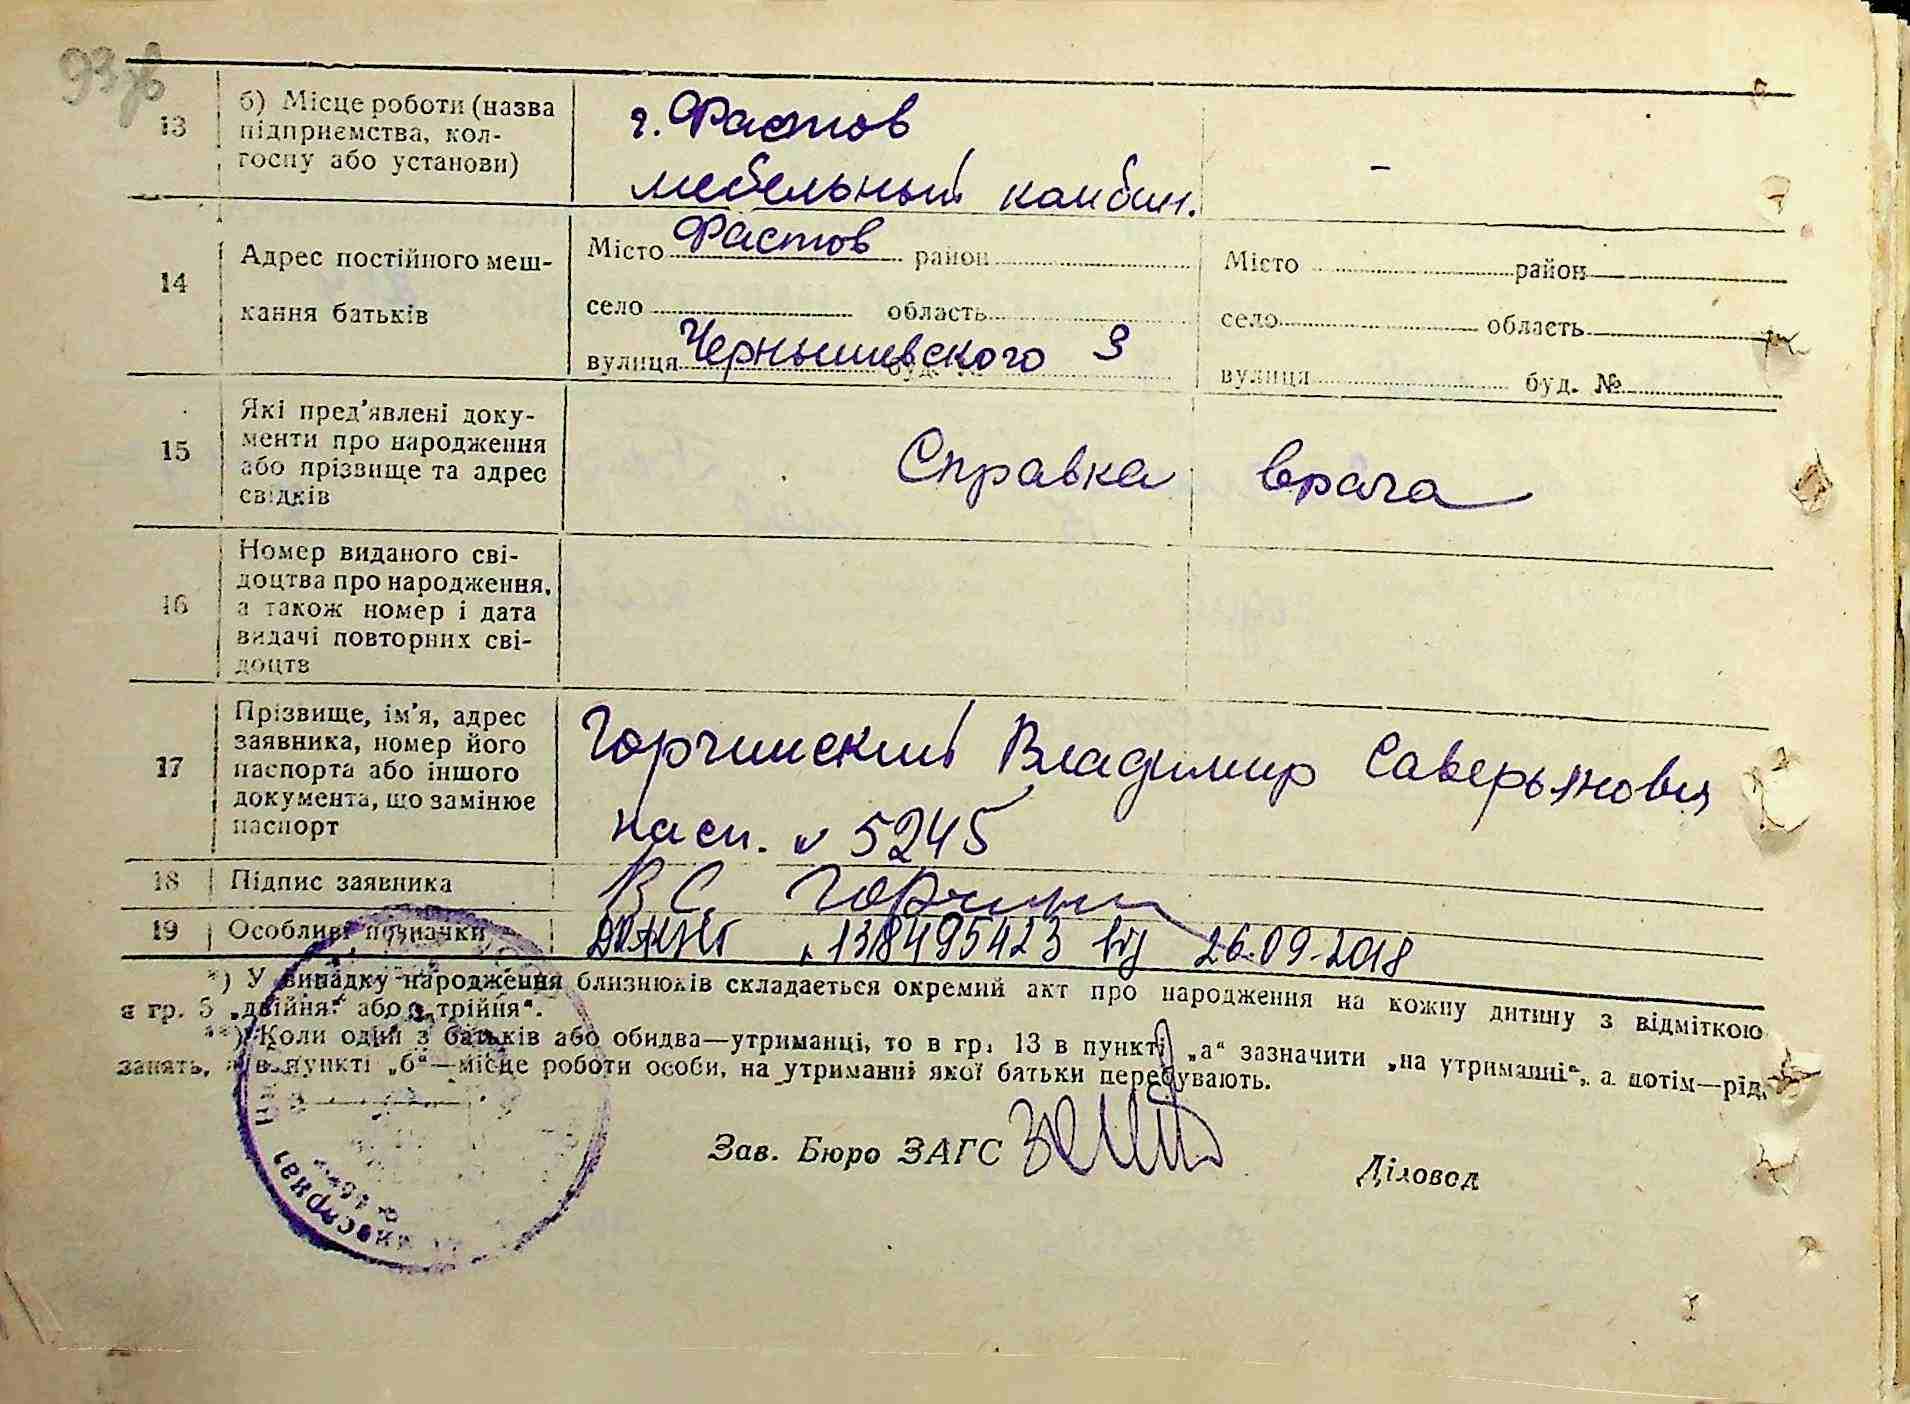 93 зв
13
б) Місце роботи (назва
підприємства, кол-
госпу або установи)
г. Фастов
мебельный комбин.
-
14
Адрес постійного меш-
кання батьків
Місто Фастов район
село область
вулиця Чернышевского 9
Місто район
село область
вулиця буд. №
15
Які пред'явлені доку-
менти про народження
або прізвище та адрес
свідків
Справка врача
16
Номер виданого сві-
доцтва про народження,
а також номер і дата
видачі повторних сві-
доцтв
17
Прізвище, ім'я, адрес
заявника, номер його
паспорта або іншого
документа, що замінює
паспорт
Горчинский Владимир Саверьянович
пасп. № 5245
18
Підпис заявника
В С. Горчин
19
Особливі позначки
ДРАЦСГ
13849542З від 26.09.2018
*) У випадку народження близнюків складається окремий акт про народження на кожну дитину з відміткою
в гр. 5 „двійня" або „трійня".
**) Коли один з батьків або обидва—утриманці, то в гр. 13 в пункті „а" зазначити „на утриманні", а потім—рід
занять, а в пункті „б"—місце роботи особи, на утриманні якої батьки перебувають.
Зав. Бюро ЗАГС
Діловод